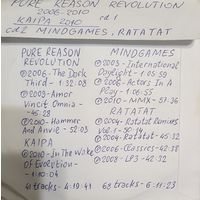 PURE REASON REVOLUTION
2006-2010
KAIPA 2010 cd 1
cd2 MINDGAMES, RATATAT
PURE REASON
REVOLUTION
2006-The Dark
Third - 1:32:08
2009-Amor
Vincit Omnia -
45:28
2010-Hammer
And Anvil - 52:03
KAIPA
2010-In The Wake
Of Evolution -
1:10:04
41 tracks - 4:19:41
MINDGAMES
2003-International
Daylight - 1:05:59
2006-Actors In A
Play - 1:06:55
2010-MMX-57:36
RATATAT
2004-Ratatat Remixes
vol.1 - 50:14
2004-Ratatat-45:32
2006-Classics-42:38
2008-LP3-42:32
68 tracks - 6:11:23